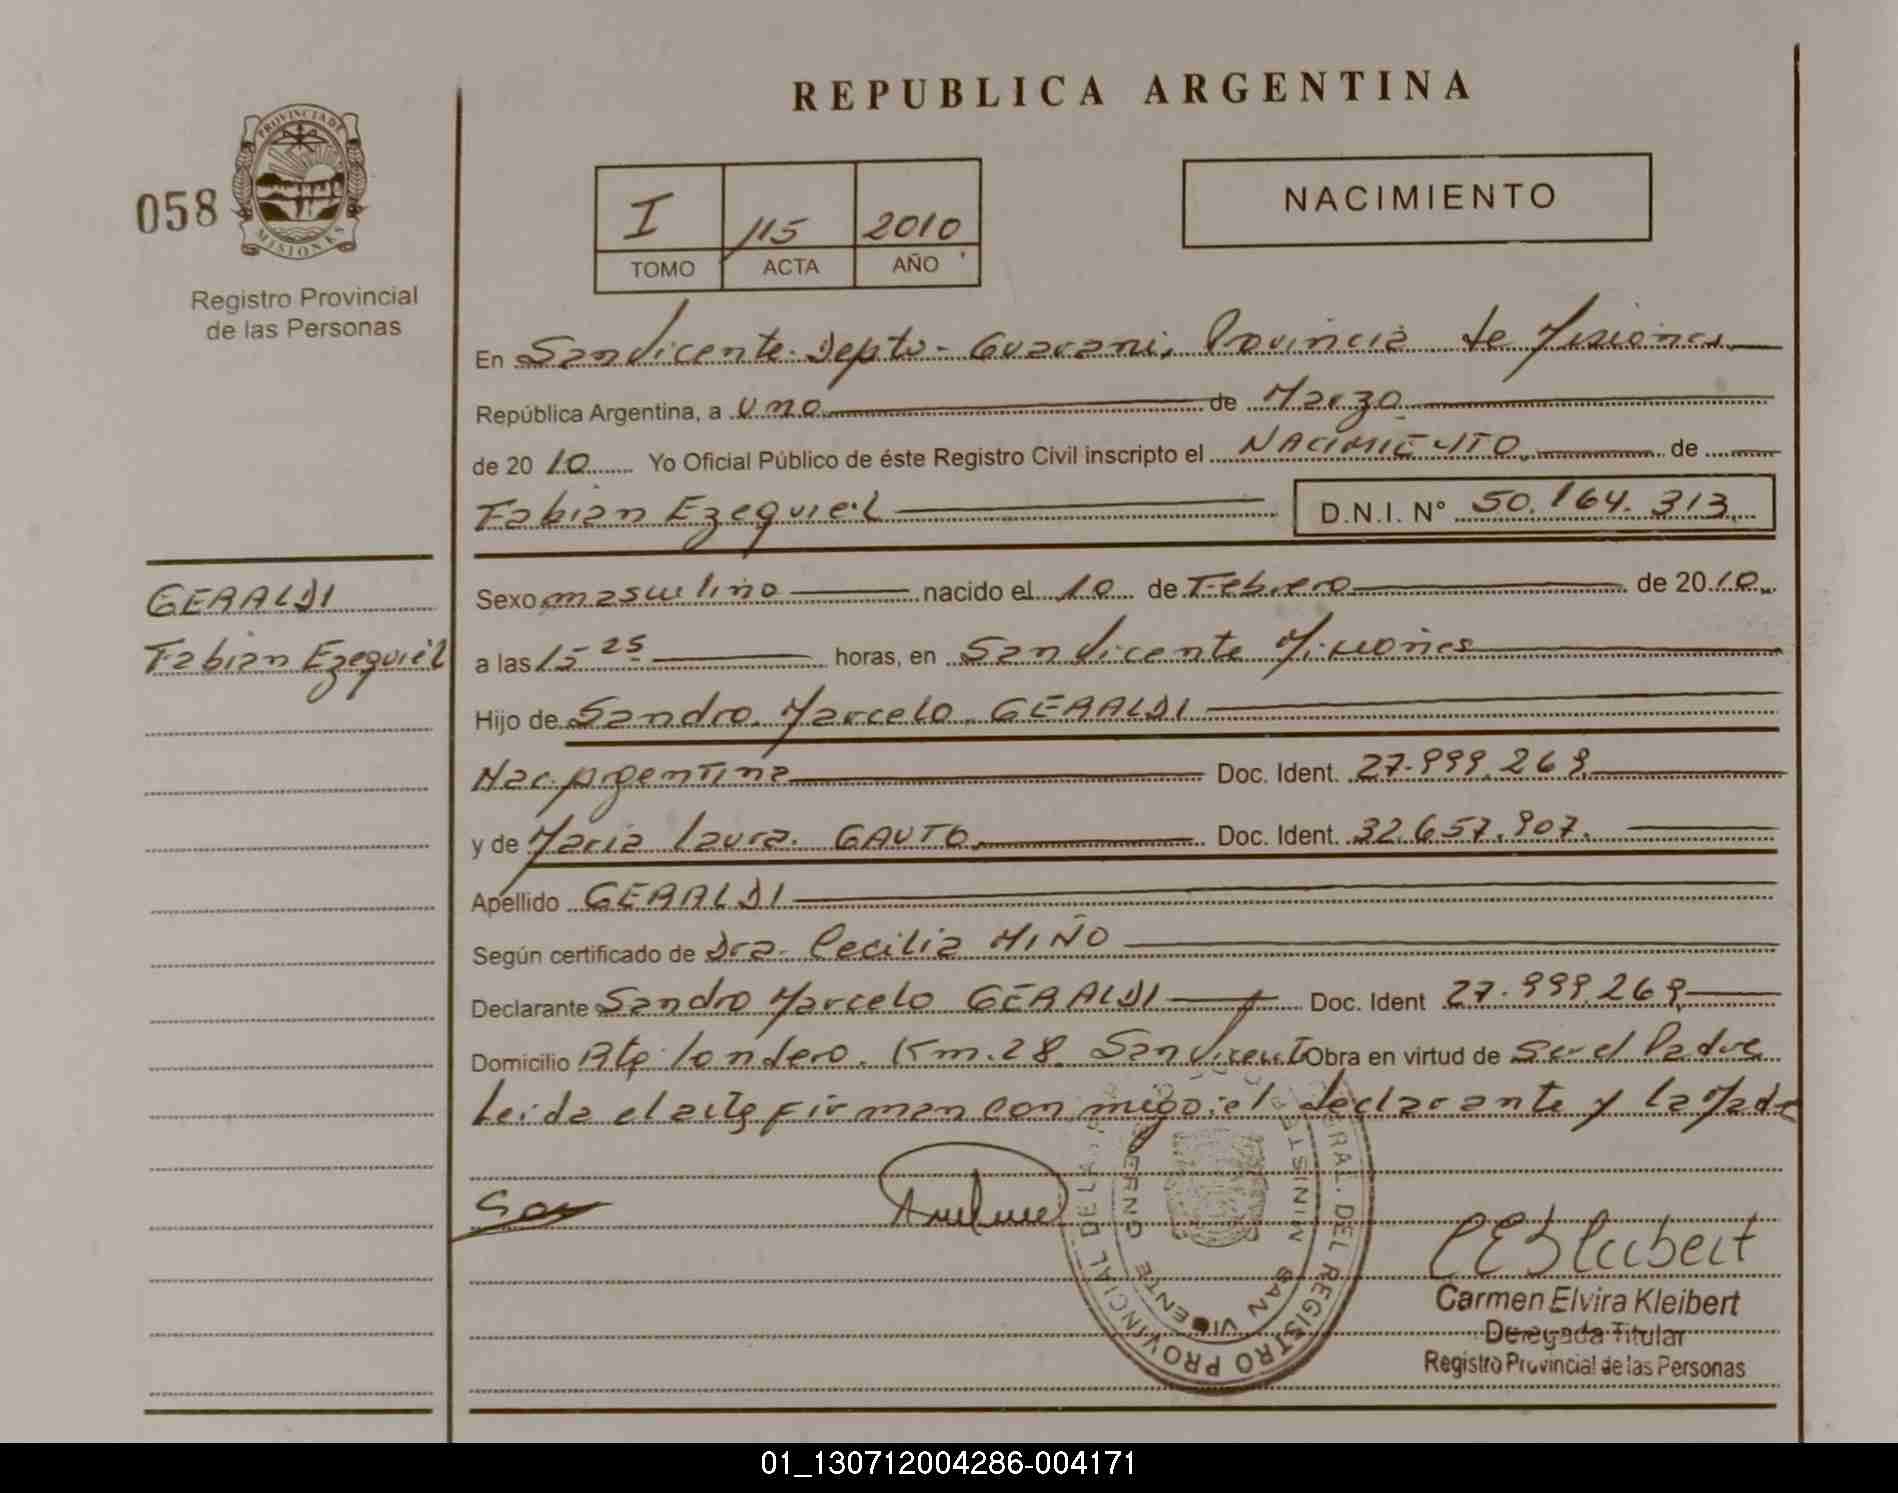 REPUBLICA ARGENTINA
PROVINCIA DE
MISIONES
058
Registro Provincial
de las Personas
I 115 2010
TOMO ACTA AÑO
NACIMIENTO
En San Vicente. Depto- Guarani, Provincia de Misiones
República Argentina, a uno de Marzo
de 2010 Yo Oficial Público de éste Registro Civil inscripto el NACIMIENTO de
Fabian Ezequiel D.N.I. N° 50.164.313
GERALDI
Fabian Ezequiel
Sexo masculino nacido el 10 de Febrero de 2010
a las 15 25 horas, en San Vicente Misiones
Hijo de Sandro Marcelo GERALDI
Nac. Argentina Doc. Ident. 27.999.269
y de Maria Laura GAUTO Doc. Ident. 32.657.907.
Apellido GERALDI
Según certificado de Dra. Cecilia MIÑO
Declarante Sandro Marcelo GERALDI Doc. Ident 27.999.269
Domicilio Londero. Km.28 San Vicente Obra en virtud de ser el Padre
Leida el acta firman conmigo: el declarante y la Madre
Carmen Elvira Kleibert
Delegada Titular
Registro Provincial de las Personas
SAN VICENTE
REGISTRO PROVINCIAL DE LA
01_130712004286-004171